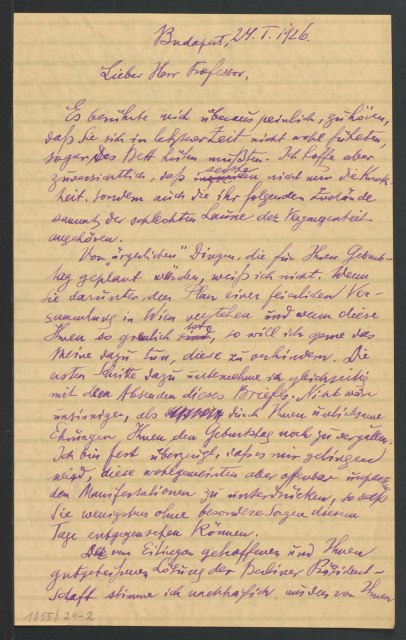 Budapest, 24. I. 1926.
Lieber Herr Professor,
Es berührte mich überaus peinlich, zu hören,
daß Sie sich in letzter Zeit nicht wohl fühlten,
sogar das Bett hüten mußten. Ich hoffe aber
zuversichtlich, daß seither nicht nur die Krank-
heit, sondern auch die ihr folgenden Zustände
sammt der schlechten Laune der Vergangenheit
angehören.
Von „ärgerlichen" Dingen, die für Ihren Geburts-
tag geplant würden, weiß ich nicht. Wenn
Sie darunter den Plan einer feierlichen Ver-
sammlung in Wien verstehen und wenn diese
Ihnen so greulich ist, so will ich gerne das
Meine dazu tun, diese zu verhindern. Die
ersten Schritte dazu unternehme ich gleichzeitig
mit dem Absenden dieses Briefes. Nichts wäre
unsinniger, als durch Ihnen unliebsame
Ehrungen Ihnen den Geburtstag noch zu vergällen.
Ich bin fest überzeugt, daß es mir gelingen
wird, diese wohlgemeinten aber offenbar unpassen-
den Manifestationen zu unterdrücken, so daß
Sie wenigstens ohne besondere Sorgen diesem
Tage entgegensehen können.
Der von Eitingon getroffenen und Ihnen
gutgeheißenen Lösung der Berliner Präsident-
schaft stimme ich nachträglich, aus den von Ihnen
1055/24-2